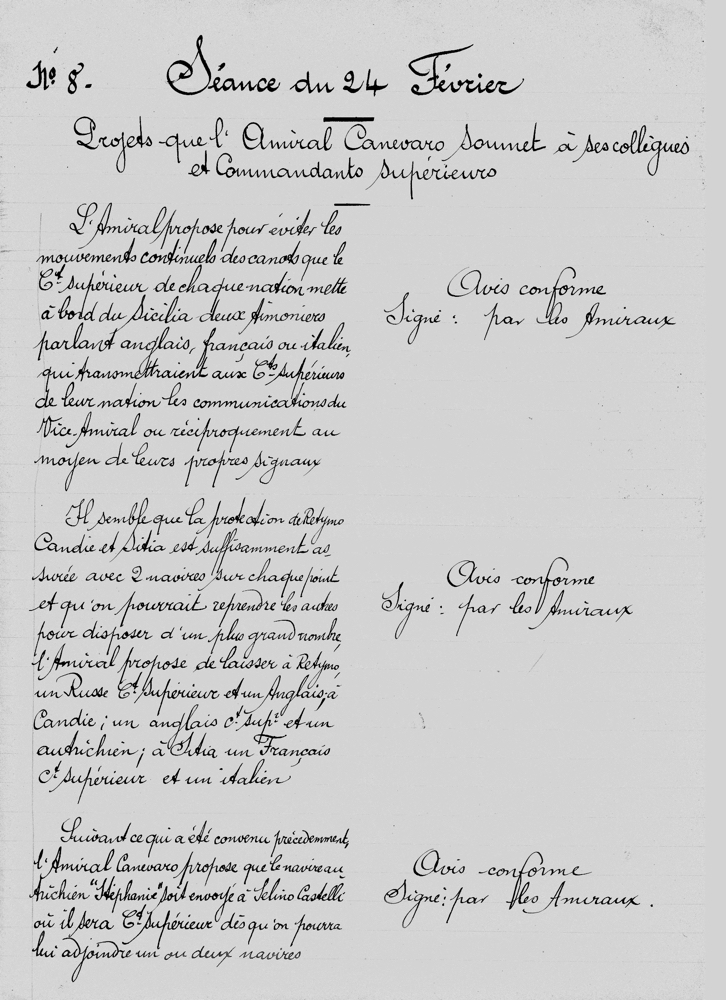 No. 8. Séance du 24 Février
Projets que l'Amiral Canevaro soumet à ses collègues
et Commandants supérieurs
L'Amiral propose pour éviter les
mouvements continuels des canots que le
Ct. supérieur de chaque nation mette
à bord du Sicilia deux timoniers
parlant anglais, français ou italien,
qui transmettraient aux Cts. supérieurs
de leur nation les communications du
Vice-Amiral ou réciproquement au
moyen de leurs propres signaux
Avis conforme
Signé : par les Amiraux
Il semble que la protection de Retymo
Candie et Sitia est suffisamment as-
surée avec 2 navires sur chaque point
et qu'on pourrait reprendre les autres
pour disposer d'un plus grand nombre,
l'Amiral propose de laisser à Retymo,
un Russe Ct. Supérieur et un Anglais; à
Candie ; un anglais ct. supr. et un
autrichien ; à Sitia un Français
ct. supérieur et un italien
Avis conforme
Signé : par les Amiraux
Suivant ce qui a été convenu précedemment,
l'Amiral Canevaro propose que le navire au
trichien "Stéphanie" soit envoyé à Selino Castelli
où il sera Ct. Supérieur dès qu'on pourra
lui adjoindre un ou deux navires
Avis conforme
Signé : par les Amiraux.